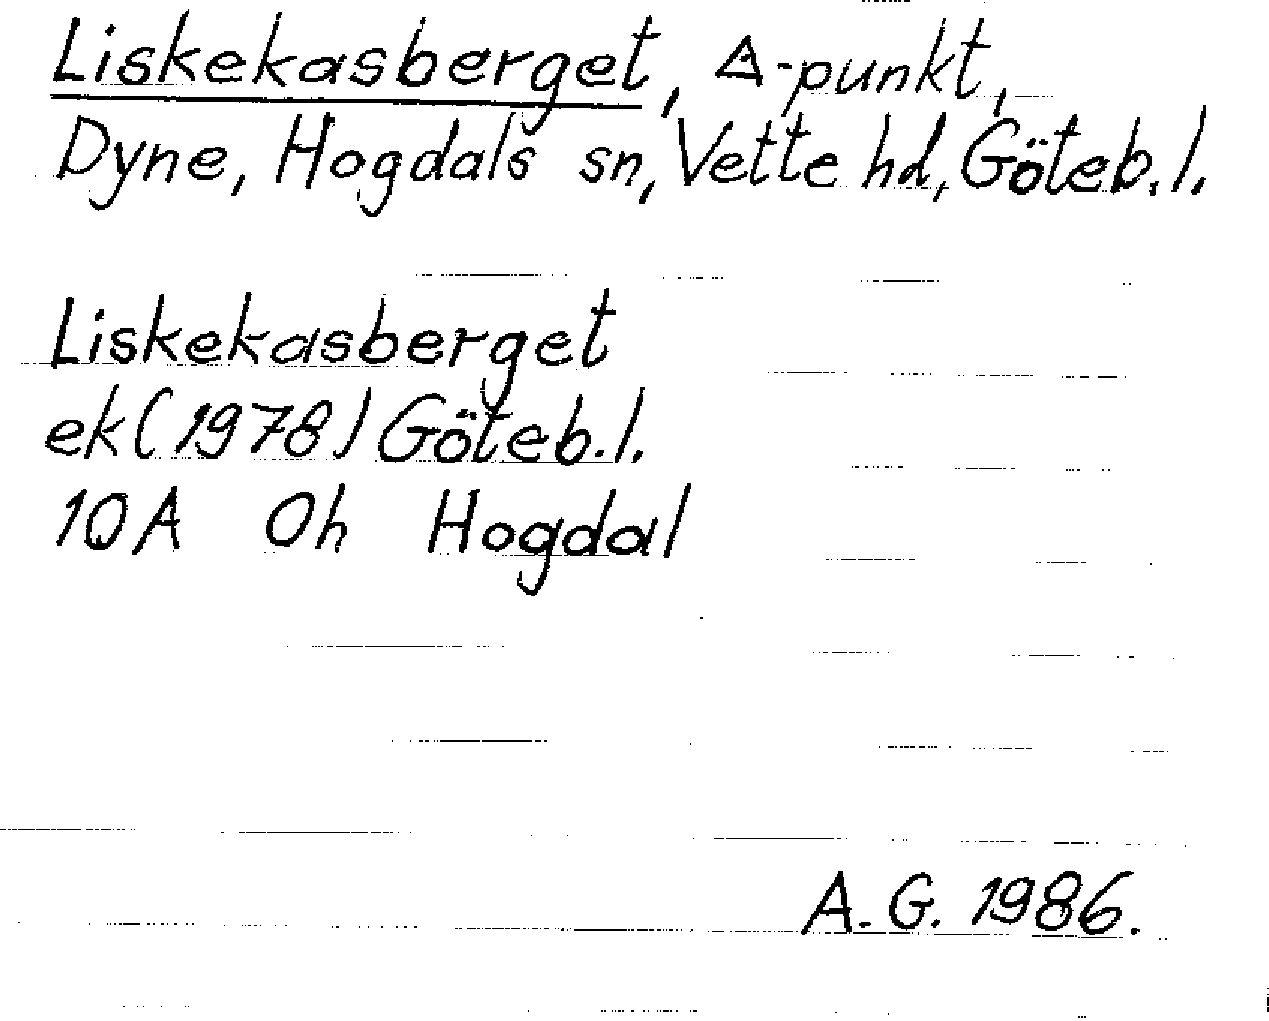 Liskekasberget, △-punkt,
Dyne, Hogdals sn, Vette hd, Göteb. l.
Liskekasberget
ek (1978) Göteb. l.
10A 0h Hogdal
A. G. 1986.